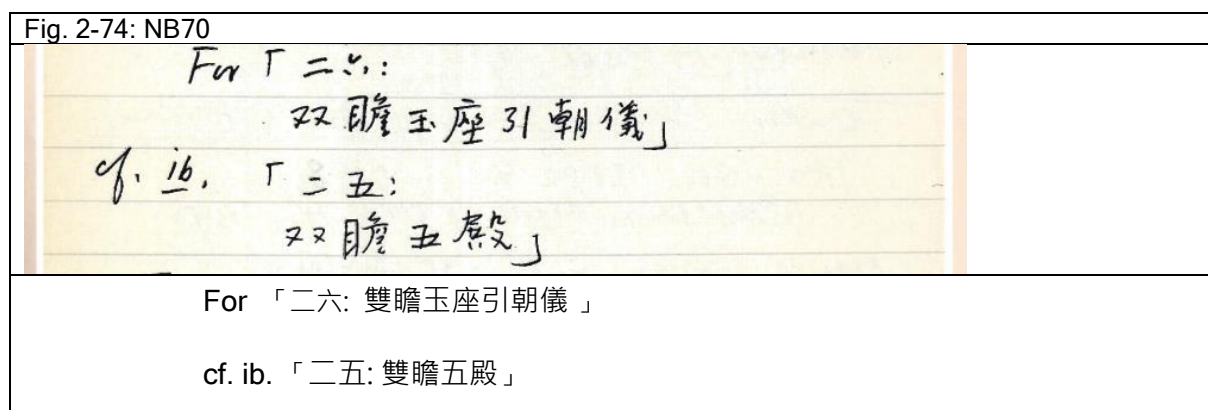 Fig. 2-74: NB70
For「二六:
双瞻玉座引朝儀」
cf. ib. 「二五:
双瞻五殿」
For 「二六: 雙瞻玉座引朝儀 」
cf. ib. 「二五: 雙瞻五殿」